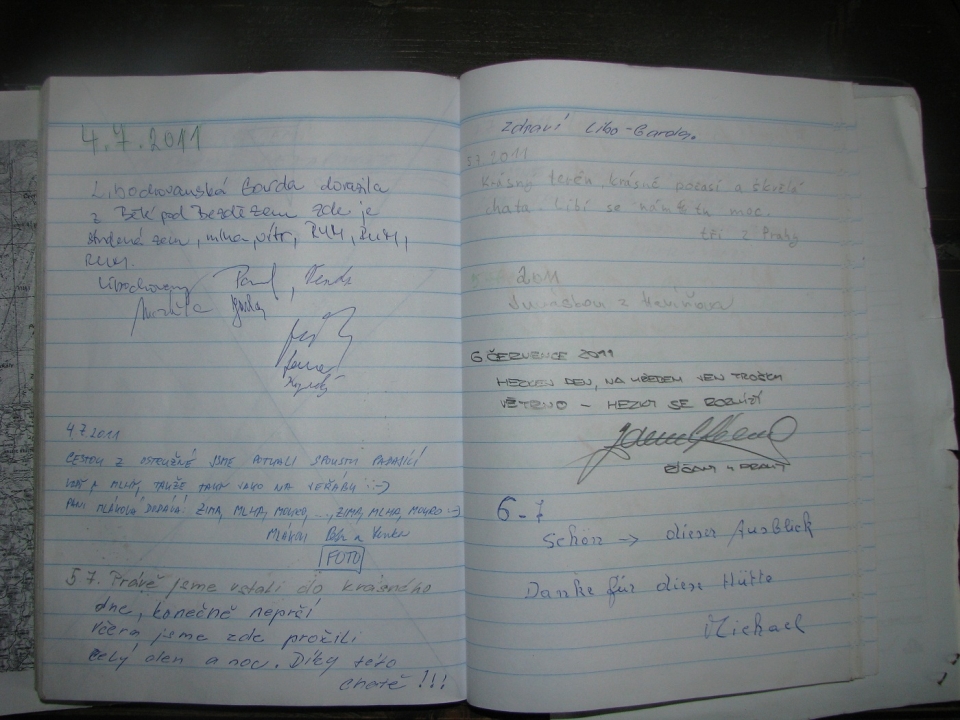 4.7.2011
Libochovanská Garda dorazila
z Bělé pod Bezdězem zde je
studená zem, mlha, vítr, RUM, RUM,
RUM.
Libochovany Pavel, Venda
4.7.2011
CESTOU Z OSTRUŽNÉ JSME POTKALI SPOUSTU PADAJÍCÍ
VODY A MLHY, TAKŽE TAKY JAKO NA
PANÍ MLÁKOVÁ DODÁVÁ: ZIMA, MLHA, MOKRO, ..., ZIMA, MLHA, MOKRO :-)
MLÁKOVI Petr a Venku
FOTO
5.7. Právě jsme vstali do krásného
dne, konečně neprší
včera jsme zde prožili
celý den a noc. Díky této
chatě !!!
Zdraví Libo-Garda.
5.7.2011
Krásný terén, krásné počasí a skvělá
chata. Líbí se nám tu moc.
tři z Prahy
2011
6 ČERVENCE 2011
HEZKEJ DEN, NA HŘEBENI JEN TROŠKU
VĚTRNO – HEZKY SE ROZJÍŽDÍ
ŘÍČANY U PRAHY
6-7
Schön → dieser Ausblick
Danke für diese Hütte
Michael